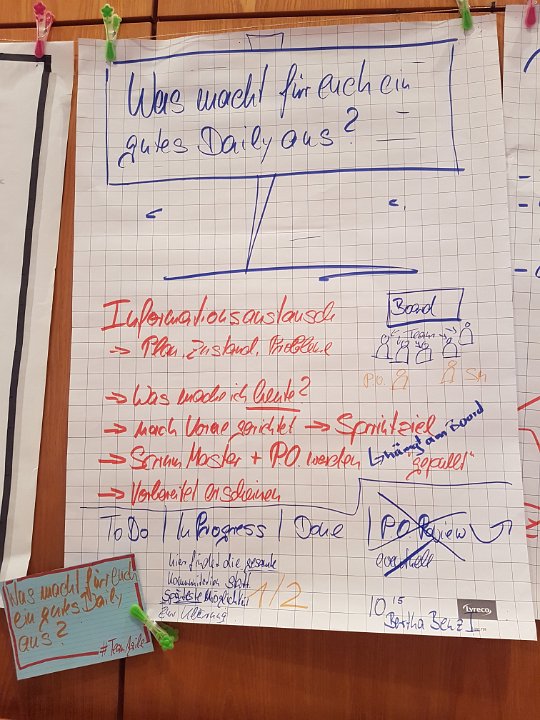 Was macht für euch ein
gutes Daily aus?
Informationsaustausch
→ Plan, Zustand, Probleme
Board
Team
PO
SM
→ Was mache ich heute?
→ nach Vorne gerichtet → Sprintziel
↳ hängt am Board
→ Scrum Master + PO werden "gepullt"
→ Vorbereitet erscheinen
ToDo | In Progress | Done | PO Review
eventuell
hier findet die gesamte
Kommunikation statt
Späteste Möglichkeit
zur Klärung
1/2
10 15
Bertha Benz I
Lyreco
Was macht für euch
ein gutes Daily
aus?